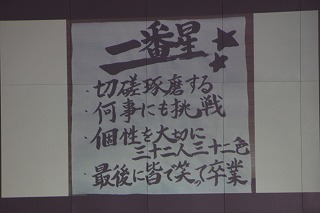 一番星
・切磋琢磨する
・何事にも挑戦
・個性を大切に
三十二人三十二色
・最後に皆で笑って卒業